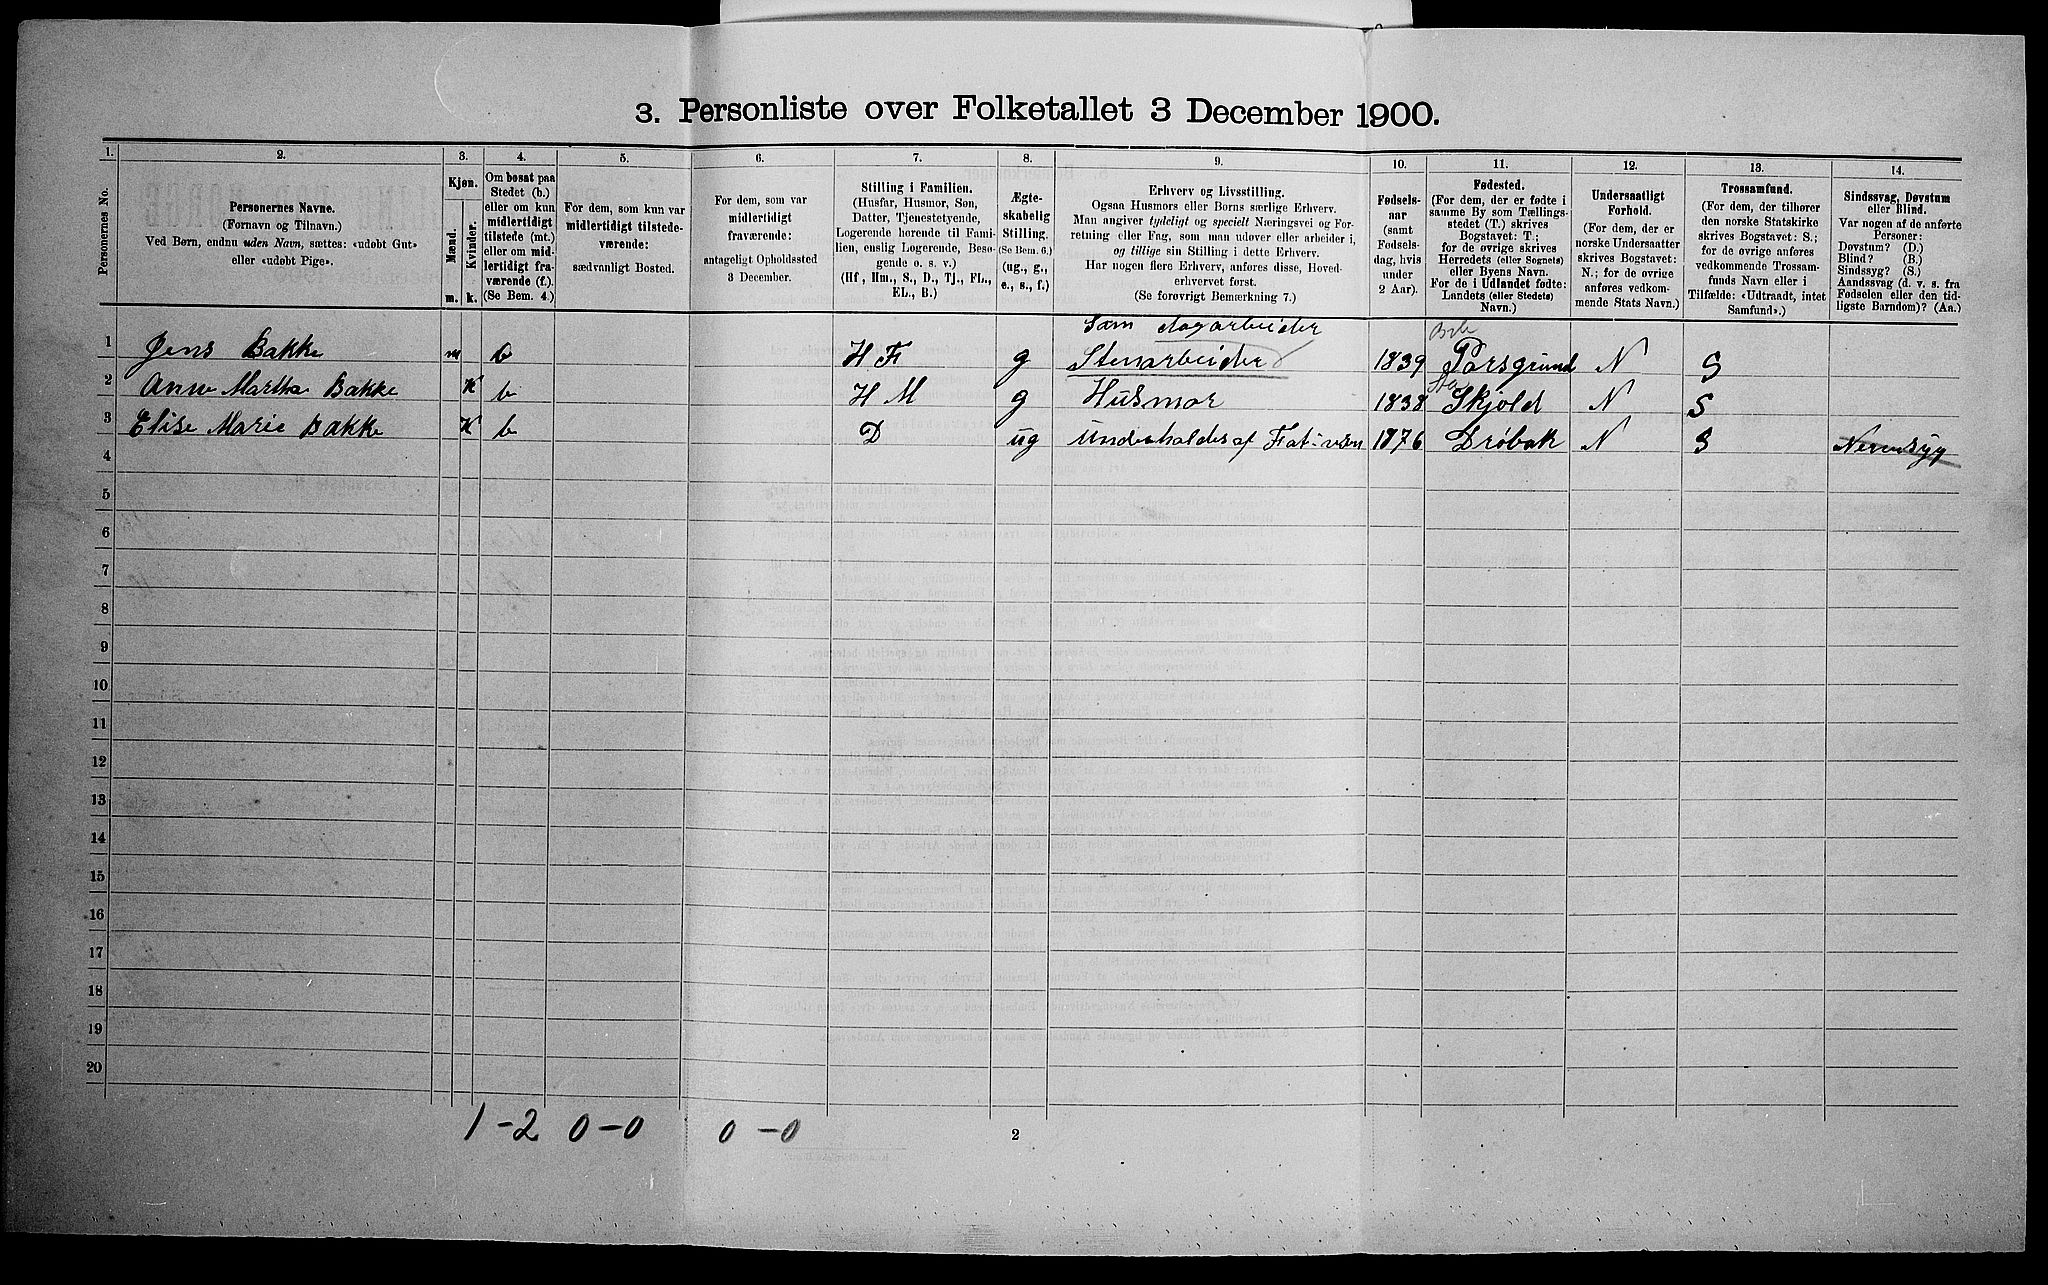 3. Personliste over Folketallet 3 December 1900.
1. 2. 3. 4. 5. 6. 7. 8. 9. 10. 11. 12. 13. 14.
Personernes No.
Personernes Navne.
(Fornavn og Tilnavn.)
Ved Børn, endnu uden Navn, sættes: «udøbt Gut»
eller «udøbt Pige».
Kjøn.
Mænd.
Kvinder.
m. k.
Om bosat paa
Stedet (b.)
eller om kun
midlertidigt
tilstede (mt.)
eller om mid-
lertidigt fra-
værende (f.).
(Se Bem. 4.)
For dem, som kun var
midlertidigt tilstede-
værende:
sædvanligt Bosted.
For dem, som var
midlertidigt
fraværende:
antageligt Opholdssted
3 December.
Stilling i Familien.
(Husfar, Husmor, Søn,
Datter, Tjenestetyende,
Logerende hørende til Fami-
lien, enslig Logerende, Besø-
gende o. s. v.)
(Hf, Hm., S., D., Tj., FL.,
EL., B.)
Ægte-
skabelig
Stilling.
(Se Bem. 6.)
(ug., g.,
e., s., f.)
Erhverv og Livsstilling.
Ogsaa Husmors eller Børns særlige Erhverv.
Man angiver tydeligt og specielt Næringsvei og For-
retning eller Fag, som man udover eller arbeider i,
og tillige sin Stilling i dette Erhverv.
Har nogen flere Erhverv, anføres disse, Hoved-
erhvervet først.
(Se forøvrigt Bemærkning 7.)
Fødsels-
aar
(samt
Fødsels-
dag, hvis
under
2 Aar).
Fødested.
(For dem, der er fødte i
samme By som Tællings-
stedet (T.) skrives
Bogstavet: T.;
for de øvrige skrives
Herredets (eller Sognets)
eller Byens Navn.
For de i Udlandet fødte:
Landets (eller Stedets)
Navn.)
Undersaatligt
Forhold.
(For dem, der er
norske Undersaatter
skrives Bogstavet:
N.; for de øvrige
anføres vedkom-
mende Stats Navn.)
Trossamfund.
(For dem, der tilhører
den norske Statskirke
skrives Bogstavet: S.;
for de øvrige anføres
vedkommende Trossam-
funds Navn eller i
Tilfælde: «Udtraadt, intet
Samfund».)
Sindssvag, Døvstum
eller Blind.
Var nogen af de anførte
Personer:
Døvstum? (D.)
Blind? (B.)
Sindssyg? (S.)
Aandssvag (d. v. s. fra
Fødselen eller den tid-
ligste Barndom)? (Aa.)
dagarbeider
1 Jens Bakke m b H F g Stenarbeider 1839 Porsgrund N S
2 Anne Martha Bakke K b H M g Husmor 1838 Skjold N S
3 Elise Marie Bakke K b D ug Underholdes af 1876 Drøbak N S Nervesyg
4
5
6
7
8
9
10
11
12
13
14
15
16
17
18
19
20
1 – 2 0 – 0 0 – 0
2